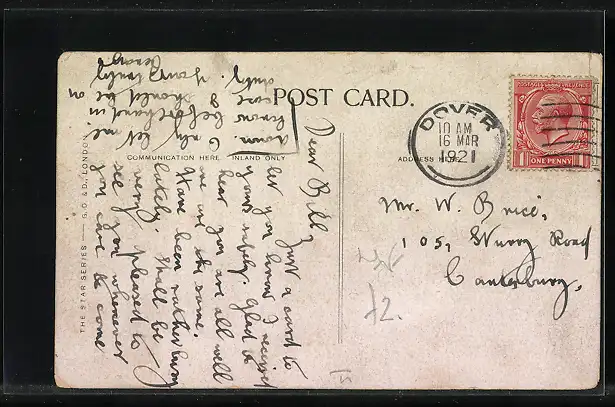 POST CARD.
COMMUNICATION HERE. INLAND ONLY
ADDRESS HERE
THE STAR SERIES — G. D. & D., LONDON
DOVER
10 AM
16 MAR
1921
POSTAGE REVENUE
ONE PENNY
Mr. W. Brice,
105, Nurry Road
Canterbury.
12.
Dear Bill,
Just a card to
let you know I received
yours safely. Glad to
hear you are all well
we are the same.
Have been rather busy
lately. Shall be
very pleased to
see you whenever
you care to come
down. Only let me
know beforehand in
case I should be on
duty. Yours truly